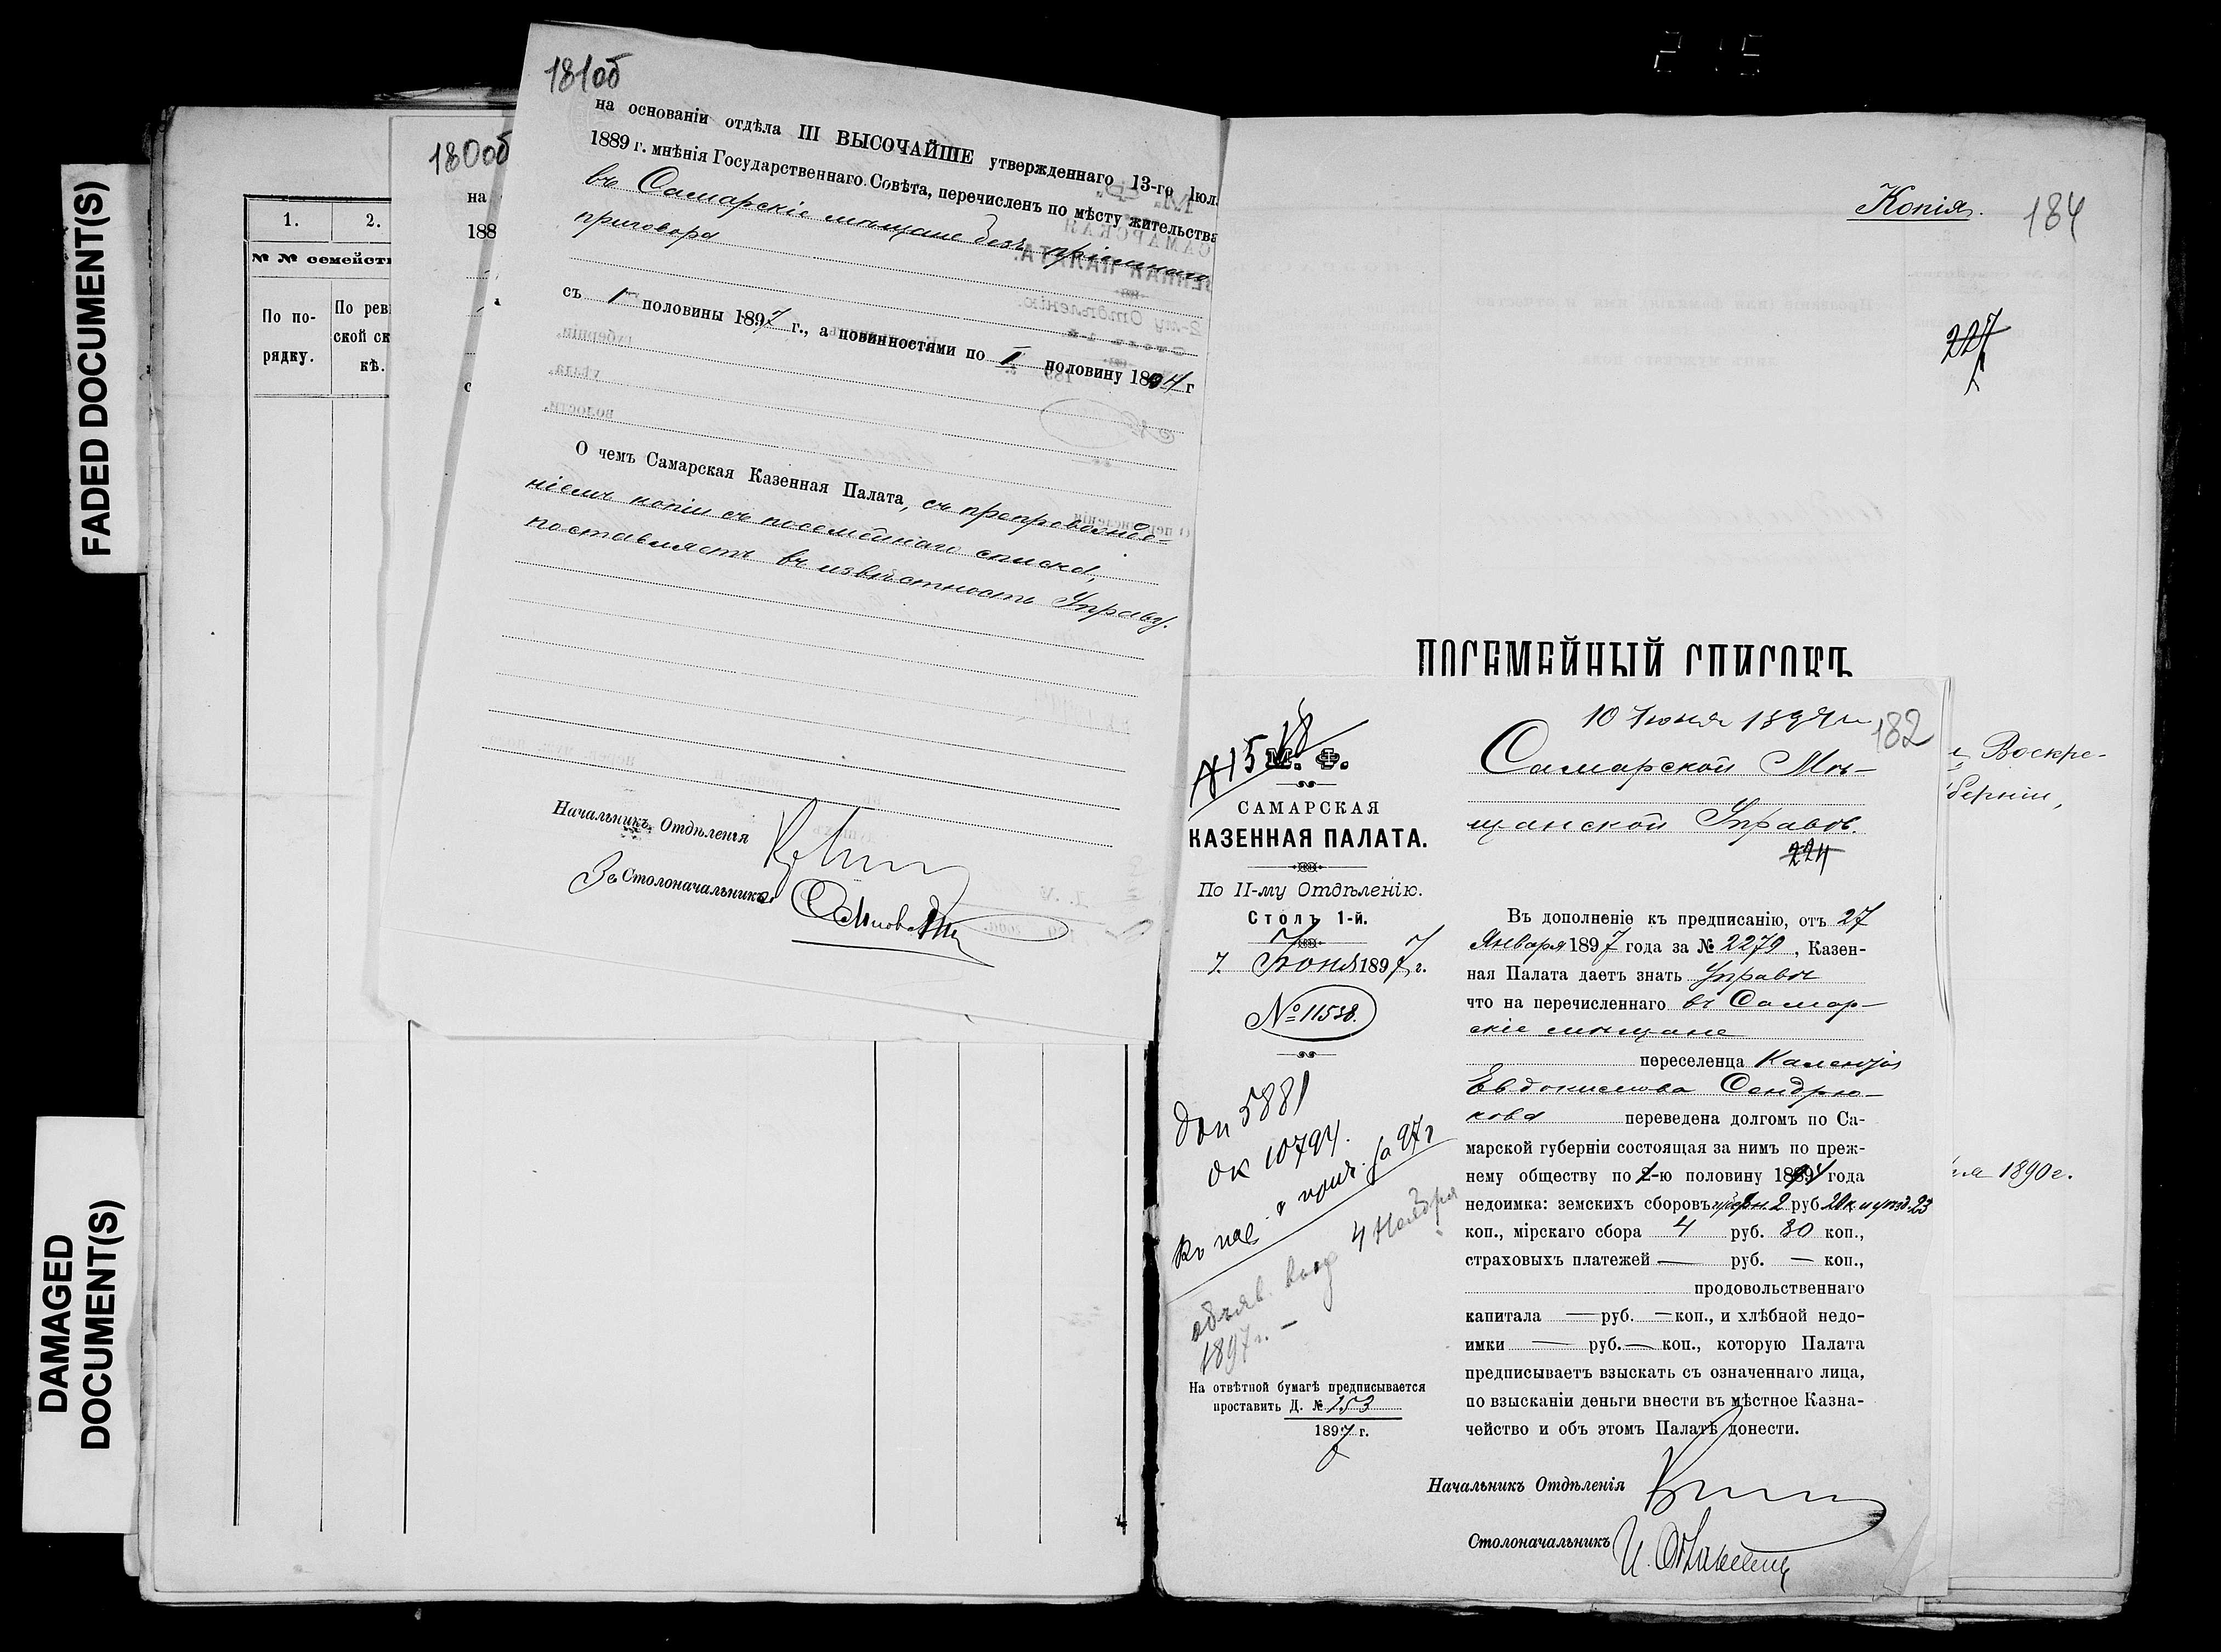 FADED DOCUMENT(S)
DAMAGED
DOCUMENT(S)
215
1.
2.
№ № семейств
По по-
рядку.
По рев
ской ск
кѣ.
180об
на
188
с
181об
на основаніи отдѣла III ВЫСОЧАЙШЕ утвержденнаго 13-го Іюл
1889 г. мнѣнія Государственнаго Совѣта, перечисленъ по мѣсту жительства
въ Самарскіе мѣщане безъ пріемнаго
приговора
съ I половины 1897 г., а повинностями по I половину 1894 г
О чемъ Самарская Казенная Палата, съ препровожде-
ніемъ копіи съ посемейнаго списка,
поставляетъ въ извѣстность Управу.
Начальникъ Отдѣленія
За Столоначальника
Копія.
184
227
ПОСЕМЕЙНЫЙ СПИСОКЪ
Воскре-
берніи,
1890 г.
10 Іюня 1897 г.
182
№15
М. Ф.
САМАРСКАЯ
КАЗЕННАЯ ПАЛАТА.
По II-му Отдѣленію.
Столъ 1-й.
7. Іюня 1897 г.
№ 11538.
доп 5881
ок 10794.
за 97 г
объяв. 4 Ноября
1897 г. —
На отвѣтной бумагѣ предписывается
проставить Д. № 153
1897 г.
Самарской Мѣ-
щанской Управѣ.
224
Въ дополненіе къ предписанію, отъ 27
Января 1897 года за № 2279, Казен-
ная Палата даетъ знать Управѣ
что на перечисленнаго въ Самар-
скіе мѣщане
переселенца
Евдокимова Сендрю-
кова переведена долгомъ по Са-
марской губерніи состоящая за нимъ по преж-
нему обществу по 2-ю половину 1894 года
недоимка: земскихъ сборовъ губерн. 2 руб. 20 к. и уѣзд. 23
коп., мірскаго сбора 4 руб. 80 коп.,
страховыхъ платежей — руб. — коп.,
продовольственнаго
капитала — руб. — коп., и хлѣбной недо-
имки — руб. — коп., которую Палата
предписываетъ взыскать съ означеннаго лица,
по взысканіи деньги внести въ мѣстное Казна-
чейство и объ этомъ Палатѣ донести.
Начальникъ Отдѣленія
Столоначальникъ